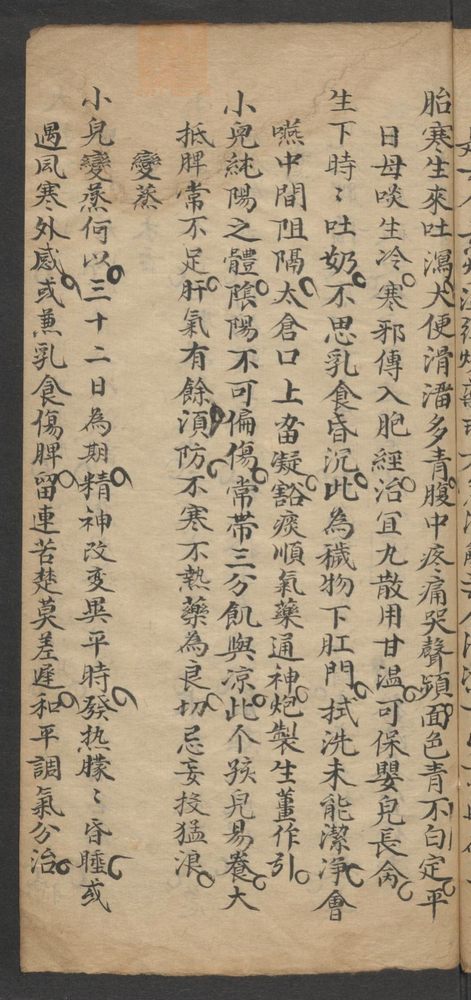 胎寒生來吐瀉大便滑潘多青腹中疼痛哭聲頻面色青不白定平
日母啖生冷寒邪傳入胞經治宜丸散用甘溫可保嬰兒長命
生下時〻吐奶不思乳食昏沉此為穢物下肛門拭洗未能潔淨會
嚥中間阻隔太倉口上畜凝豁痰順氣藥通神炮製生薑作引
小兒純陽之體陰陽不可偏傷常帶三分飢與凉此个孩兒易養大
抵脾常不足肝氣有餘湏防不寒不熱藥為良切忌妄投猛浪
變蒸
小兒變蒸何以三十二日為期精神改变異平時發热朦〻昏睡或
遇風寒外感或兼乳食傷脾留連苦楚莫差遲和平調氣分治